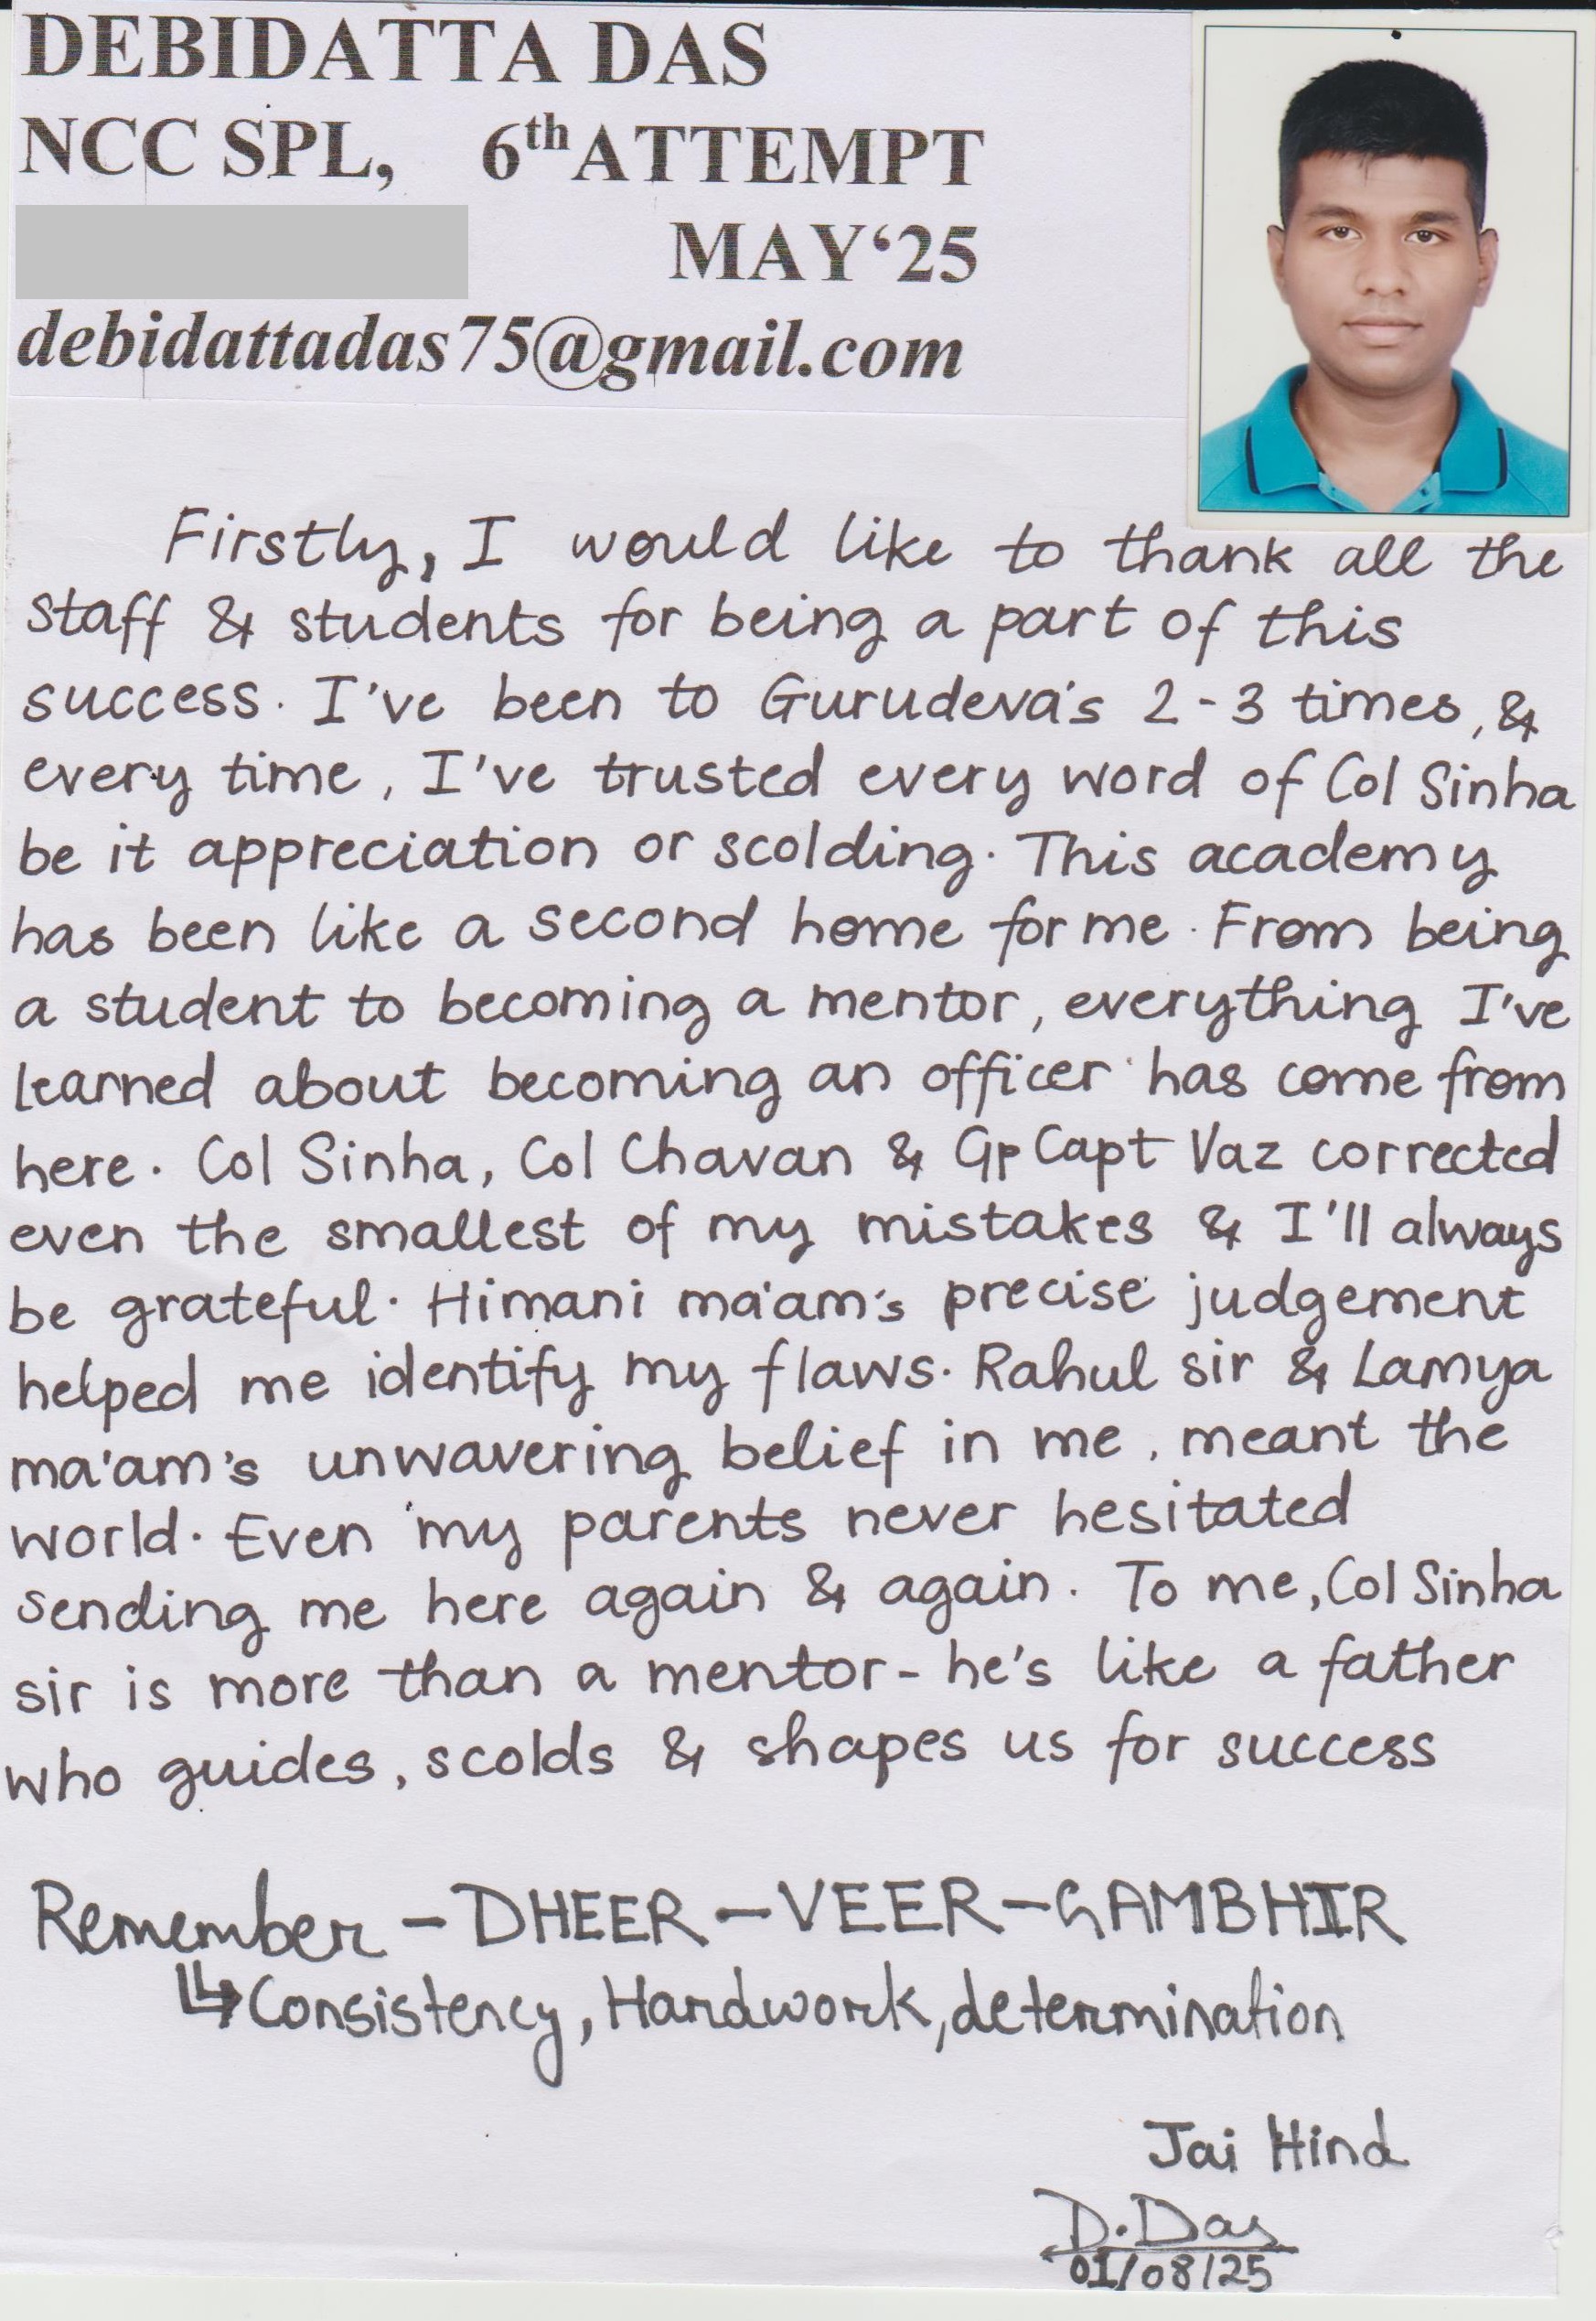 DEBIDATTA DAS
NCC SPL, 6th ATTEMPT
MAY‘25
debidattadas75@gmail.com
Firstly, I would like to thank all the
staff & students for being a part of this
success. I've been to Gurudeva's 2-3 times, &
every time, I've trusted every word of Col Sinha
be it appreciation or scolding. This academy
has been like a second home for me. From being
a student to becoming a mentor, everything I've
learned about becoming an officer has come from
here. Col Sinha, Col Chavan & Gp Capt Vaz corrected
even the smallest of my mistakes & I'll always
be grateful. Himani ma'am's precise judgement
helped me identify my flaws. Rahul sir & Lamya
ma'am's unwavering belief in me, meant the
world. Even my parents never hesitated
sending me here again & again. To me, Col Sinha
sir is more than a mentor - he's like a father
who guides, scolds & shapes us for success
Remember - DHEER - VEER - GAMBHIR
↳ Consistency, Hardwork, determination
Jai Hind
D.Das
01/08/25